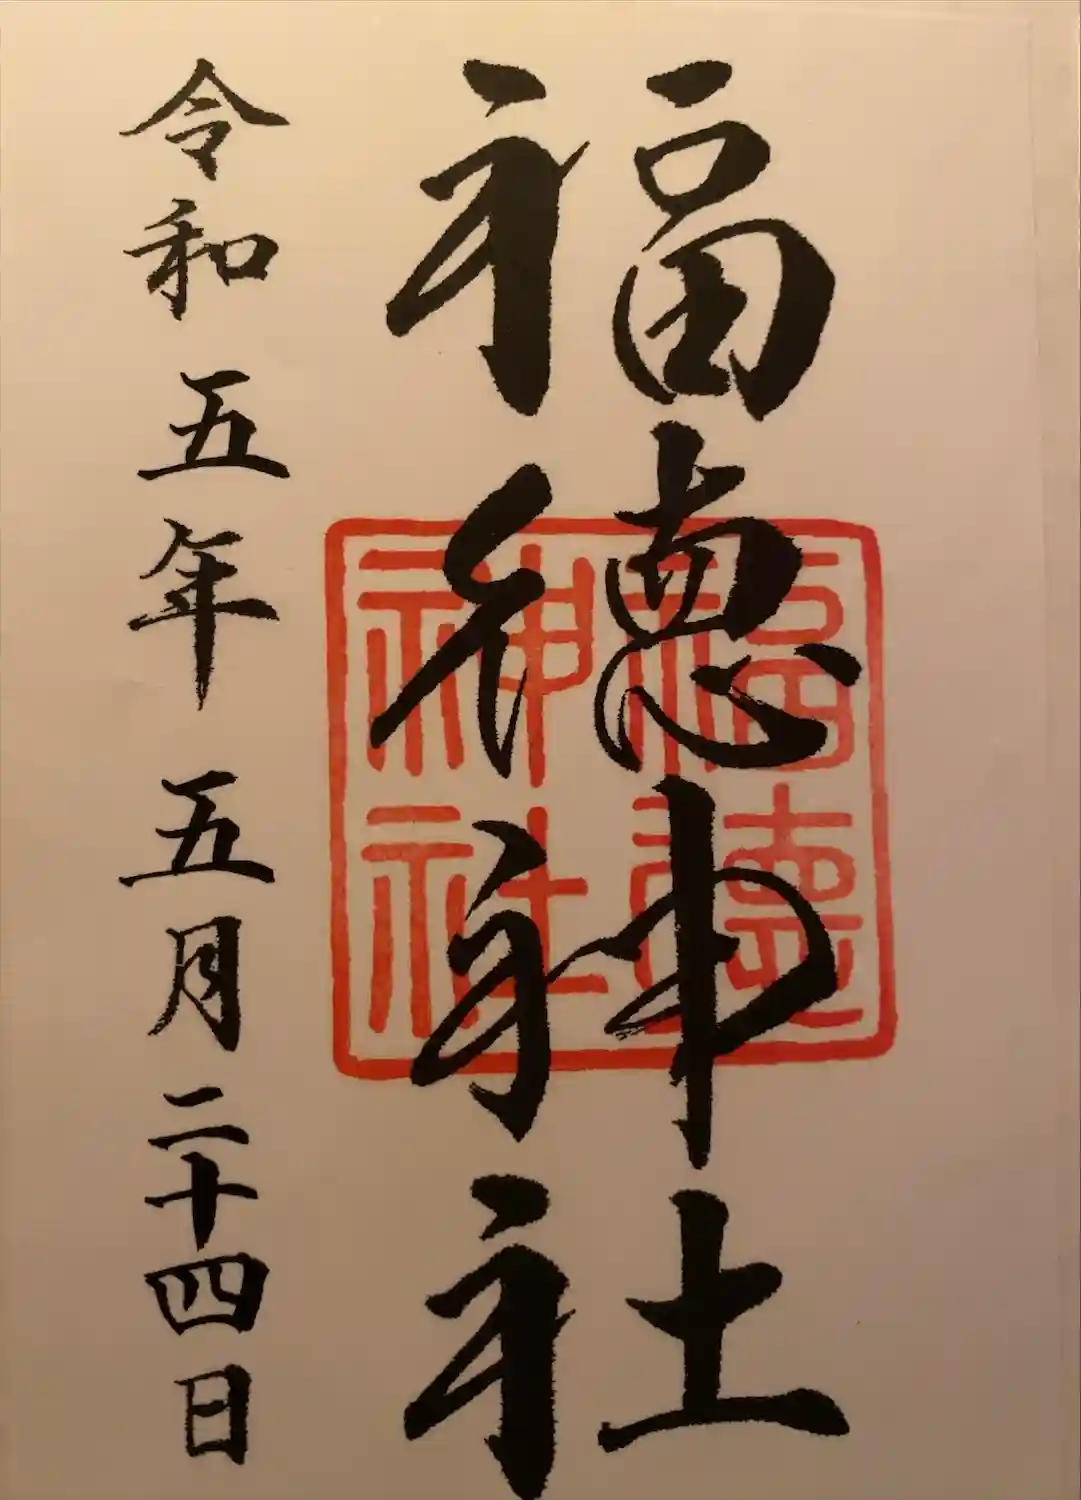 福徳神社
福徳神社
令和五年五月二十四日